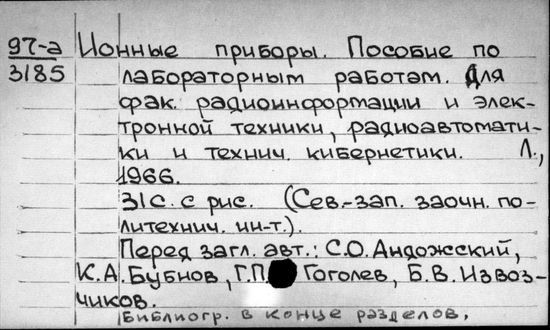 97-а Ионные приборы. Пособие по
3185 лабораторным работам. Для
фак. радиоинформации и элек-
тронной техники, радиоавтомати-
ки и технич. кибернетики. Л.,
1966.
31 с. с рис. (Сев.-зап. заочн. по-
литехнич. ин-т.).
Перед загл. авт.: С.О. Андожский,
К.А. Бубнов, Г.П. Гоголев, Б.В. Извоз-
чиков.
Библиогр. в конце разделов.